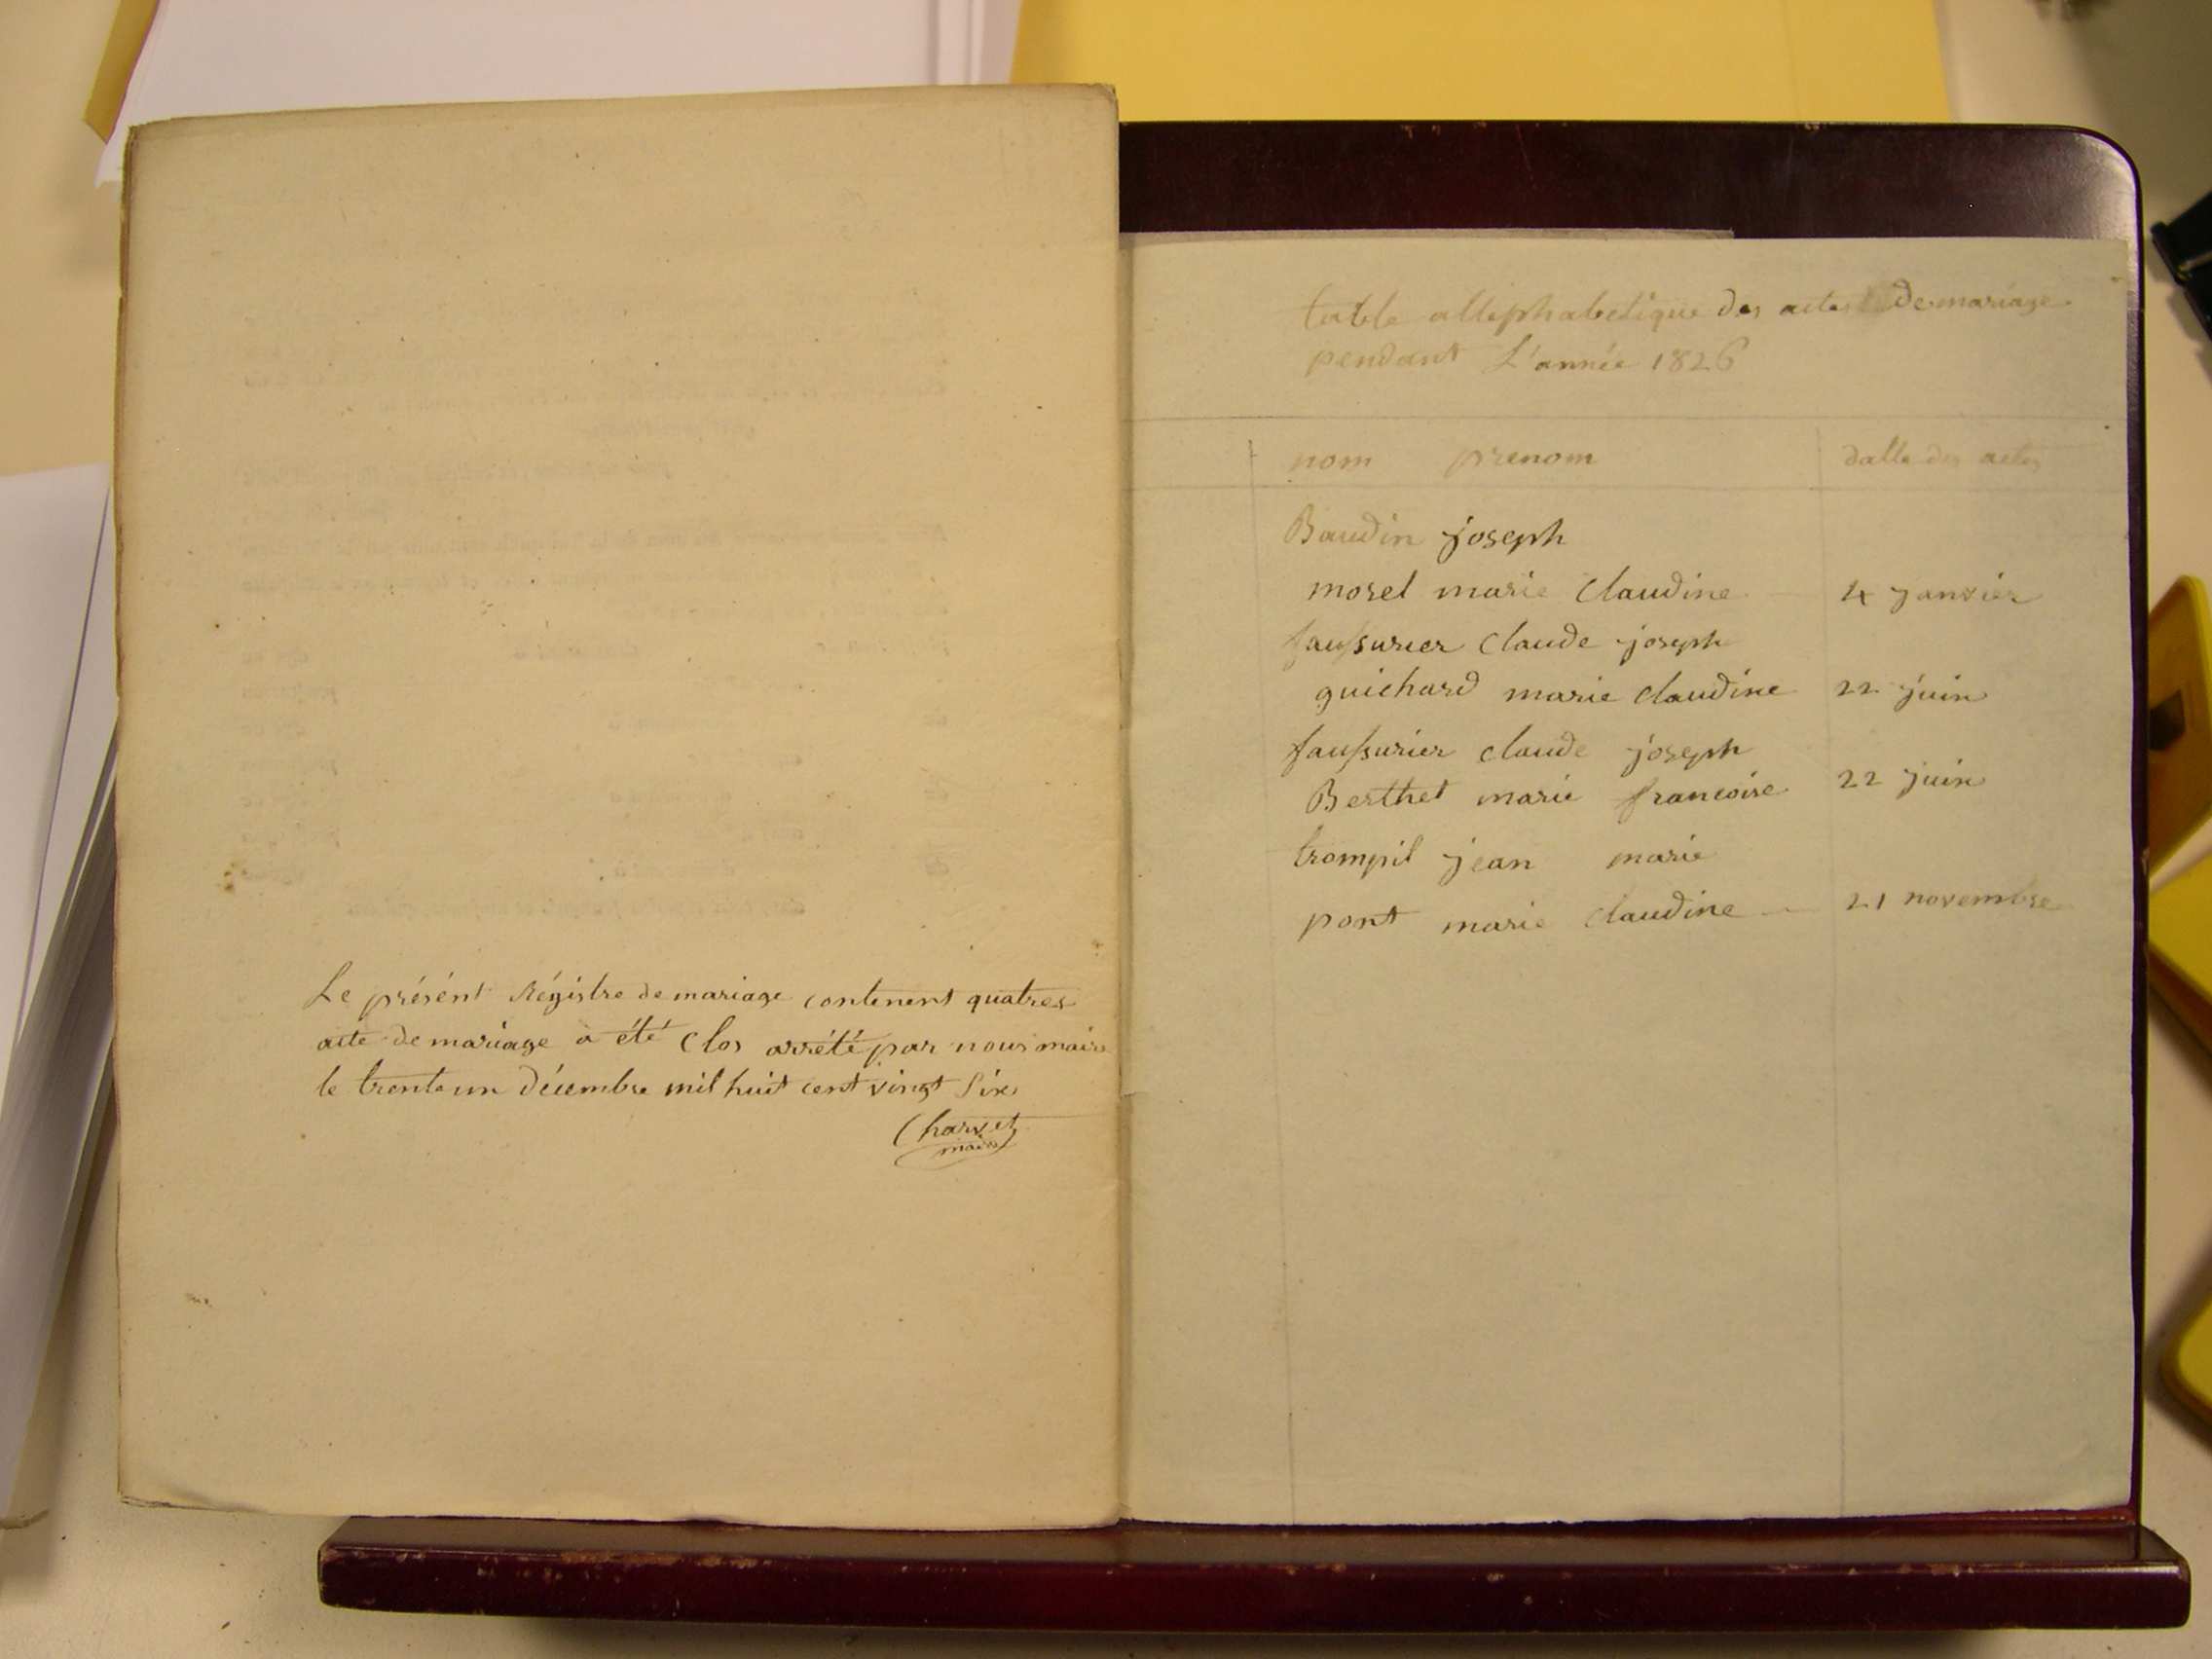 Le présént Régistre de mariage contenent quatres
acte de mariage a été Clos arrété par nous maire
le trente un décembre mil huit cent vingt Six
Charvet
maire
table allephabetique des actes de mariage
pendant L'année 1826
nom prenom datte des actes
Baudin joseph
morel marie Claudine 4 janvier
faussurier Claude joseph
guichard marie claudine 22 juin
faussurier claude joseph
Berthet marie francoise 22 juin
trompil jean marie
pont marie Claudine 21 novembre